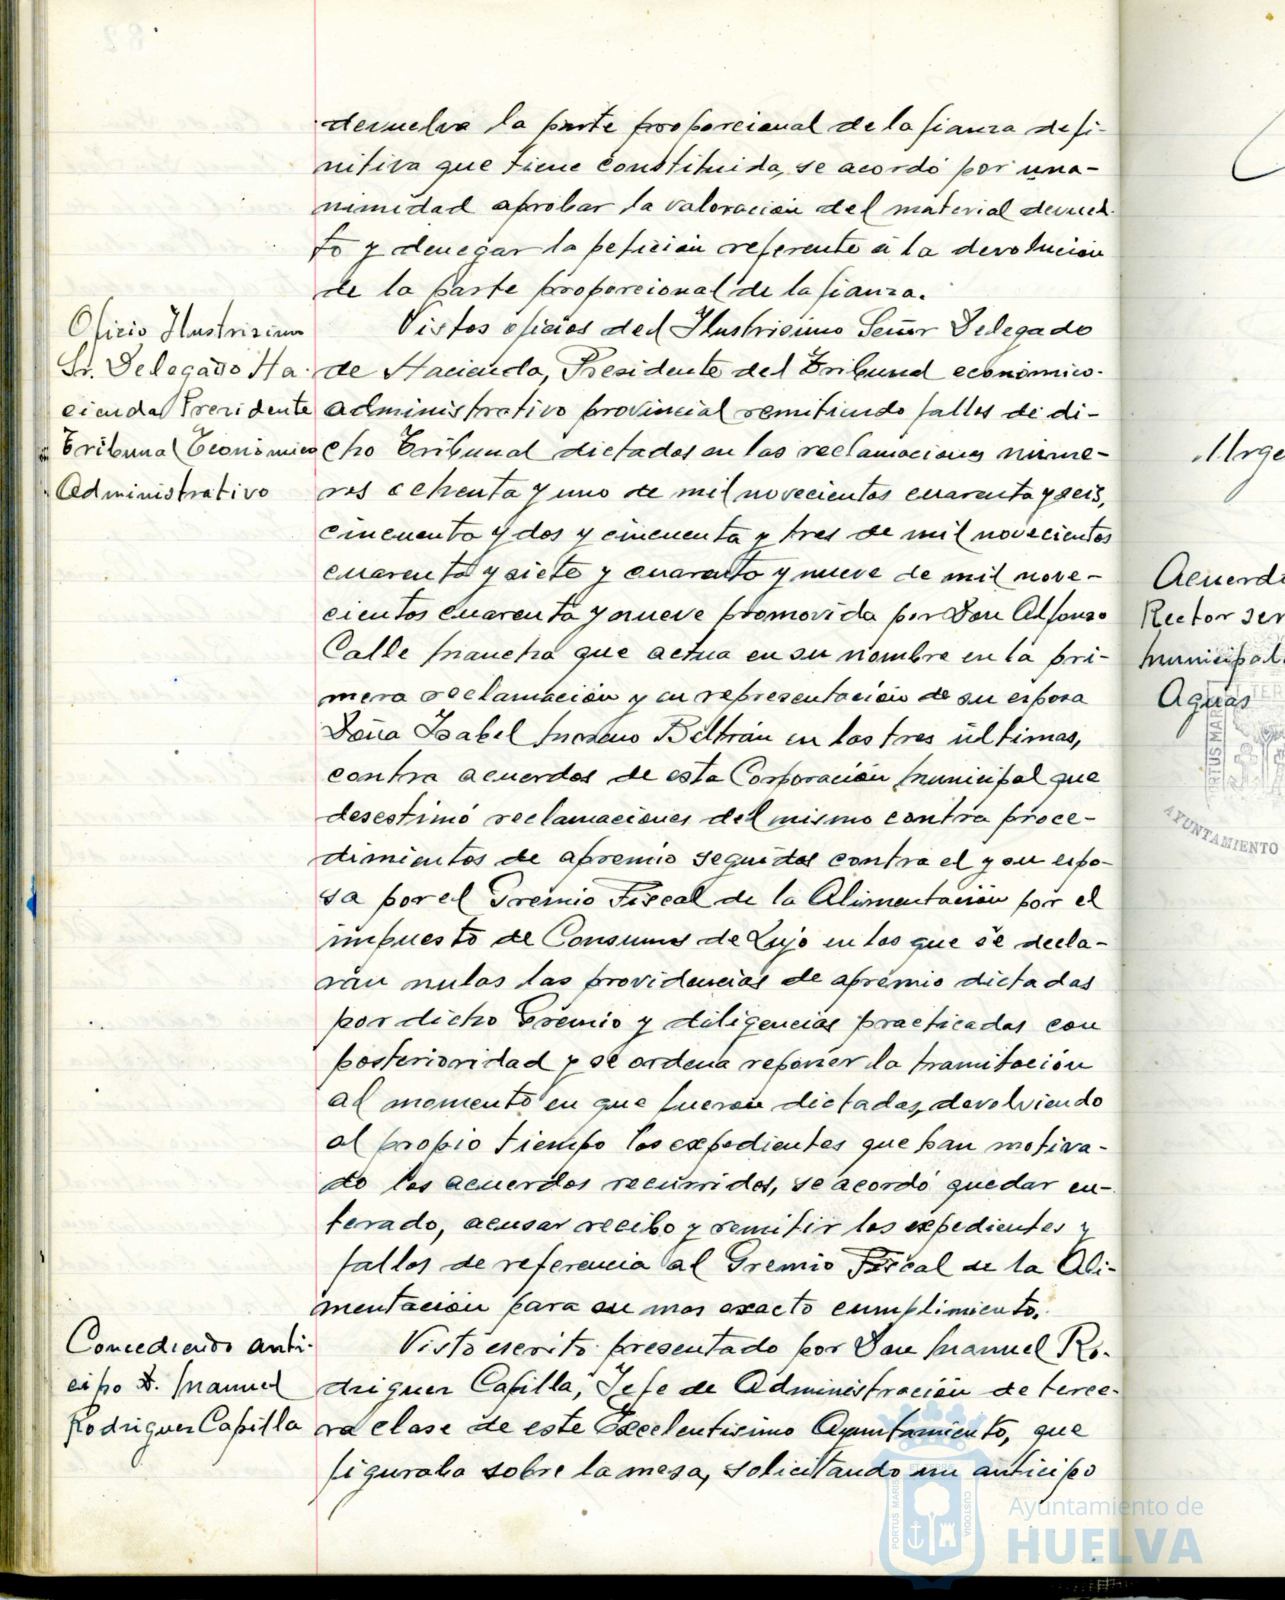 devuelva la parte proporcional de la fianza defi-
nitiva que tiene constituida, se acordó por una-
nimidad aprobar la valoración del material devuel-
to y denegar la petición referente a la devolución
de la parte proporcional de la fianza.
Oficio Ilustrisimo
Sr. Delegado Ha-
cienda Presidente
Tribunal Económico
Administrativo
Vistos oficios del Ilustrisimo Señor Delegado
de Hacienda, Presidente del Tribunal económico-
administrativo provincial remitiendo fallos de di-
cho Tribunal dictados en las reclamaciones núme-
ros ochenta y uno de mil novecientos cuarenta y seis,
cincuenta y dos y cincuenta y tres de mil novecientos
cuarenta y siete y cuarenta y nueve de mil nove-
cientos cuarenta y nueve promovida por Don Alfonso
Calle Mancha que actua en su nombre en la pri-
mera reclamación y en representación de su esposa
Doña Isabel Moreno Beltrán en las tres últimas,
contra acuerdos de esta Corporación Municipal que
desestimó reclamaciones del mismo contra proce-
dimientos de apremio seguidos contra el y su espo-
sa por el Gremio Fiscal de la Alimentación por el
impuesto de Consumos de Lujo en los que se decla-
ran nulas las providencias de apremio dictadas
por dicho Gremio y diligencias practicadas con
posterioridad y se ordena reponer la tramitación
al momento en que fueron dictadas, devolviendo
al propio tiempo los expedientes que han motiva-
do los acuerdos recurridos, se acordó quedar en-
terado, acusar recibo y remitir los expedientes y
fallos de referencia al Gremio Fiscal de la Ali-
mentación para su mas exacto cumplimiento.
Concediendo anti-
cipo D. Manuel
Rodriguez Capilla
Visto escrito presentado por Don Manuel Ro-
driguez Capilla, Jefe de Administración de terce-
ra clase de este Excelentisimo Ayuntamiento, que
figuraba sobre la mesa, solicitando un anticipo
Urge
Acuerdo
Rector ser
Municipal
Aguas
AYUNTAMIENTO
PORTUS MARIS
CUSTODIA
Ayuntamiento de
HUELVA